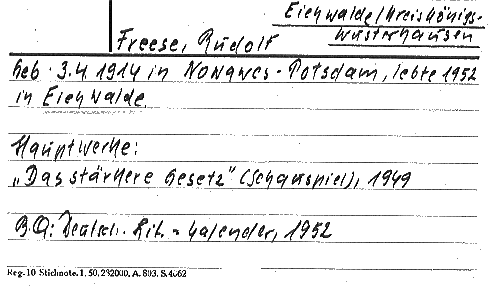 Eichwalde/Kreis Königs-
Wusterhausen
Freese, Rudolf
Geb. 3.4.1914 in Nowawes-Potsdam, lebte 1952
in Eichwalde.
Hauptwerke:
„Das stärkere Gesetz" (Schauspiel), 1949
B.Q.: Deutsch. Lit.-Kalender, 1952
Reg. 10 Stichnote. 1. 50. 232000. A. 803. S. 4662